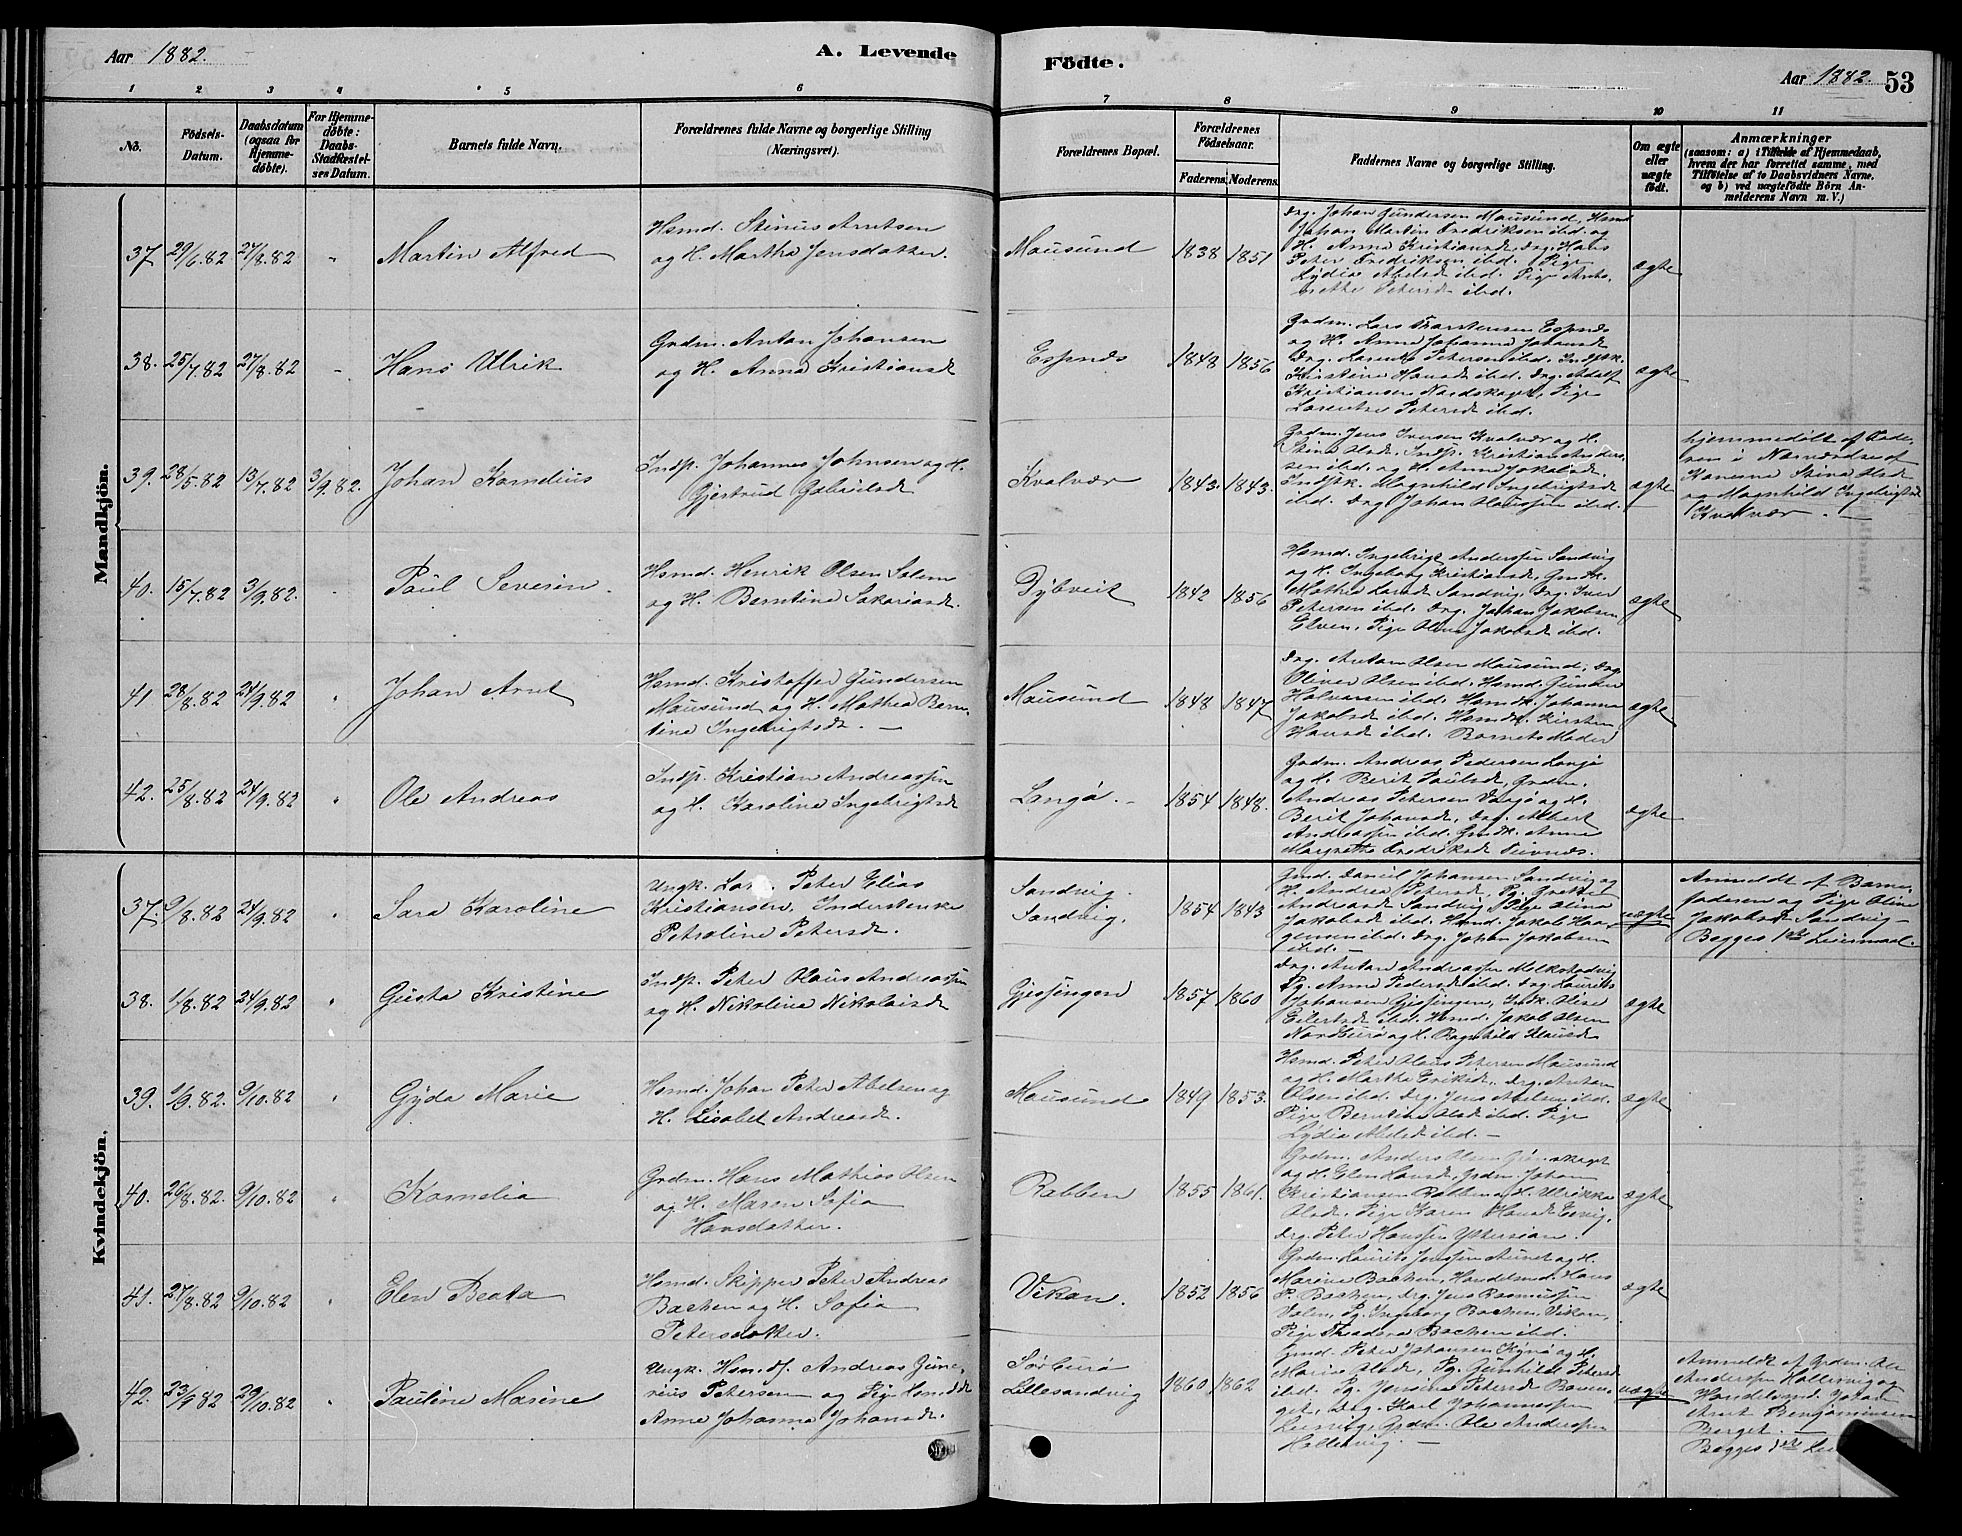 Aar 1882.
A. Levende
Födte.
Aar 1882.
53
1 2 3 4 5 6
7 8 9 10 11
No.
Födsels-Datum.
Daabsdatum (ogsaa for Hjemmedöbte).
For Hjemmedöbte: Daabs-Stadfæstelses Datum.
Barnets fulde Navn.
Forældrenes fulde Navne og borgerlige Stilling (Næringsvei).
Forældrenes Bopæl.
Forældrenes Födselsaar.
Faderens. Moderens.
Faddernes Navne og borgerlige Stilling.
Om ægte eller uægte födt.
Anmærkninger
(saasom: a) i Tilfælde af Hjemmedaab, hvem der har forrettet samme, med Tilföielse af to Daabsvidners Navne, og b) ved uægtefödte Börn Anmelderens Navn m. V.)
Mandkjön.
37 29/6.82 27/8.82 - Martin Alfred
Hsmd. Stinus Arntsen
og H. Martha Jensdatter.
Mausund 1838 1851
Drg. Johan Gundersen Mausund, Hsmd
Johan Martin Fredriksen ibid. og
H. Anna Kristiansd, Drg. Hans
Peter Fredriksen ibd. Pige
Lydia Abelsd ibd. Pige Anto-
nette Petersd ibd.
ægte
38. 25/7.82 27/8.82 - Hans Ulrik
Grdm. Anton Johansen
og H. Anna Kristiansd
Espnæs 1848 1856
Grdm. Lars Thorstensen Espnæs
og H. Anna Johanna Johansd
Drg. Lorents Petersen ibd. Indstk.
Kristine Hansd ibd. Drg. Adolf
Kristiansen Nordskaget, Pige
Lorentse Petersd ibd.
ægte
39. 28/5.82 13/7.82 3/9.82. Johan Kornelius
Indp. Johannes Johnsen og H.
Gjertrud Gabrielsd
Kvalvær 1843. 1843.
Grdm. Jens Iversen Kvalvær og H.
Stina Olsd. Indp. Kristian Anders-
sen ibd. og H. Anne Jakobsd.
Indstk. Magnhild Ingebrigtsd
ibd. Drg Johan Olaussen ibd.
ægte
hjemmedøbt af Fade-
ren i Nærværelse af
Konerne Stina Olsd
og Magnhild Ingebrigtsd
Kvalvær. —
40. 15/7.82 3/9.82. - Paul Severin.
Hsmd. Henrik Olsen Solem
og H. Berntine Sakariasd.
Dybveit 1842 1856
Hsmd. Ingebrigt Anderssen Sandvig
og H. Ingeborg Kristiansd, Gmdk.
Mathea Larsd Sandvig, Drg. Iver
Petersen ibd. Drg. Johan Jakobsen
Elven, Pige Olina Jakobsd ibd.
ægte
41 28/8.82 24/9.82 " Johan Arnt
Hsmd. Kristoffer Gundersen
Mausund og H. Mathea Bern-
tine Ingebrigtsd. —
Mausund 1848 1847
Drg. Anton Olsen Mausund, Drg
Oliver Olsen ibd. Hsmd. Gunder
Halvorsen ibd. Hsmdk. Johanna
Jakobsd ibd. Hsmdk. Kirsten
Hansd ibd. Barnets Moder
ægte
42. 25/8.82 24/9.82 " Ole Andreas
Indp. Kristian Andreassen
og H. Karoline Ingebrigtsd
Langø. - 1854 1848.
Grdm. Andreas Pedersen Langø
og H. Berit Paulsd, Grdm.
Andreas Petersen Vasø og H.
Berit Johansd, Drg. Albert
Andreassen ibd. Gmdk. Anna
Margrethe Fredriksd Veivnæs.
ægte
Kvindekjön.
37. 9/8.82 24/9.82 " Sara Karoline
Ungk. Peter Elias
Kristiansen. Inderstenke
Petroline Petersd.
Sandvig.
Sandvig. 1854 1843
Gmd. Daniel Johansen Sandvig og
H. Andrea Petersd, Pg. Grethe
Andreasd Sandvig, Pige Olina
Jakobsd ibd. Hsmd. Jakob Haa-
gensen ibd. Drg. Johan Jakobsen
ibd. —
uægte
Anmeldt af Barne-
faderen og Pige Olina
Jakobsd Sandvig –
Begges 1ste Leiermaal.
38. 1/8.82 24/9.82 " Gusta Kristine
Indp. Peter Olaus Andreassen
og H. Nikoline Nikolaisd
Gjessingen 1857 1860
Drg. Anton Andreassen Melkstadvig
Pg. Anna Pedersd ibd. Drg. Laurits
Johansen Gjessingen, Indk. Olise
Eilertsd ibd. Hsmd. Jakob Olsen
Nordburø og H. Ragnhild Klausd
ægte
39. 9/9.82. 9/10.82 " Gyda Marie
Hsmd. Johan Peter Abelsen og
H. Lisabet Andreasd.
Mausund 1849 1853.
Hsmd. Peter Olaus Petersen Mausund
og H. Martha Eriksd, Drg. Anton
Olsen ibd. Drg. Jens Abelsen ibd.
Pige Berntine Olsd ibd. Pige
Lydia Abelsd ibd. —
ægte
40. 26/8.82. 9/10.82 " Kornelia
Grdm. Hans Mathias Olsen
og H. Maren Sofia
Hansdatter.
Rabben 1855 1861.
Grdm. Anders Olsen
og H. Elen Hansd, Grdm Johan
Kristiansen Rabben og H. Ulrikka
Olsd, Pige Karen Hansd Ervig,
Drg. Peter Hanssen Yttersian.
ægte
41. 27/8.82 9/10.82 " Elen Beata
Hsmd. Skipper Peter Andreas
Bachen og H. Sofia
Petersdatter.
Vikan. 1852 1856
Grdm. Laurits Jenssen Aunet og H.
Marine Bachen, Handelsmd. Hans
P. Bachen, Drg. Jens Rasmussen
Valen, Pg. Ingeborg Bachen Vikan,
Pige Theodora Bachen ibd.
ægte
42. 23/9 82 29/10.82 " Pauline Marine
Ungk. Hsmdf. Andreas Zine-
nius Petersen og Pige Hsmdd
Anna Johanna Johansd.
Sørburø
Lillesandvig 1860 1862
Gmd. Peter Johansen Kjørø og H.
Marie Olsd, Pg. Gunhild Petersd
ibd. Pg. Jensine Petersd Bous-
get, Drg. Karl Johannessen
Leirvig, Grdm. Ole Anderssen
Hallervig. —
uægte
Anmeldt af Grdm. Ole
Andersen Hallervig og
Handelsmd. Johan
Arnt Benjaminsen
Berget. —
Begges 1ste Lei